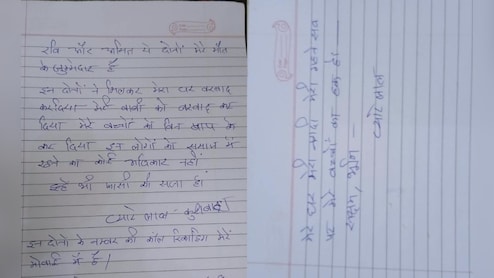 रवि और अमित ये दोनों मेरे मौत
के जुम्मेदार हैं
इन दोनों ने मिलकर मेरा घर बरबाद
कर दिया मेरी को बरबाद कर
दिया मेरे बच्चों को बिन बाप के
कर दिया इन लोगों को समाज में
रहने का कोई अधिकार नहीं
इन्हें भी फांसी की सजा हो
प्यारे लाल कुशवाहा
इन दोनों के नम्बर की कॉल रिकार्डिंग मेरे
मोबाई में हैं।
मेरे घर मेरी गाड़ी मेरी सब
पर मेरे बच्चों का हक है।
सक्षम, भूमि –
प्यारे लाल